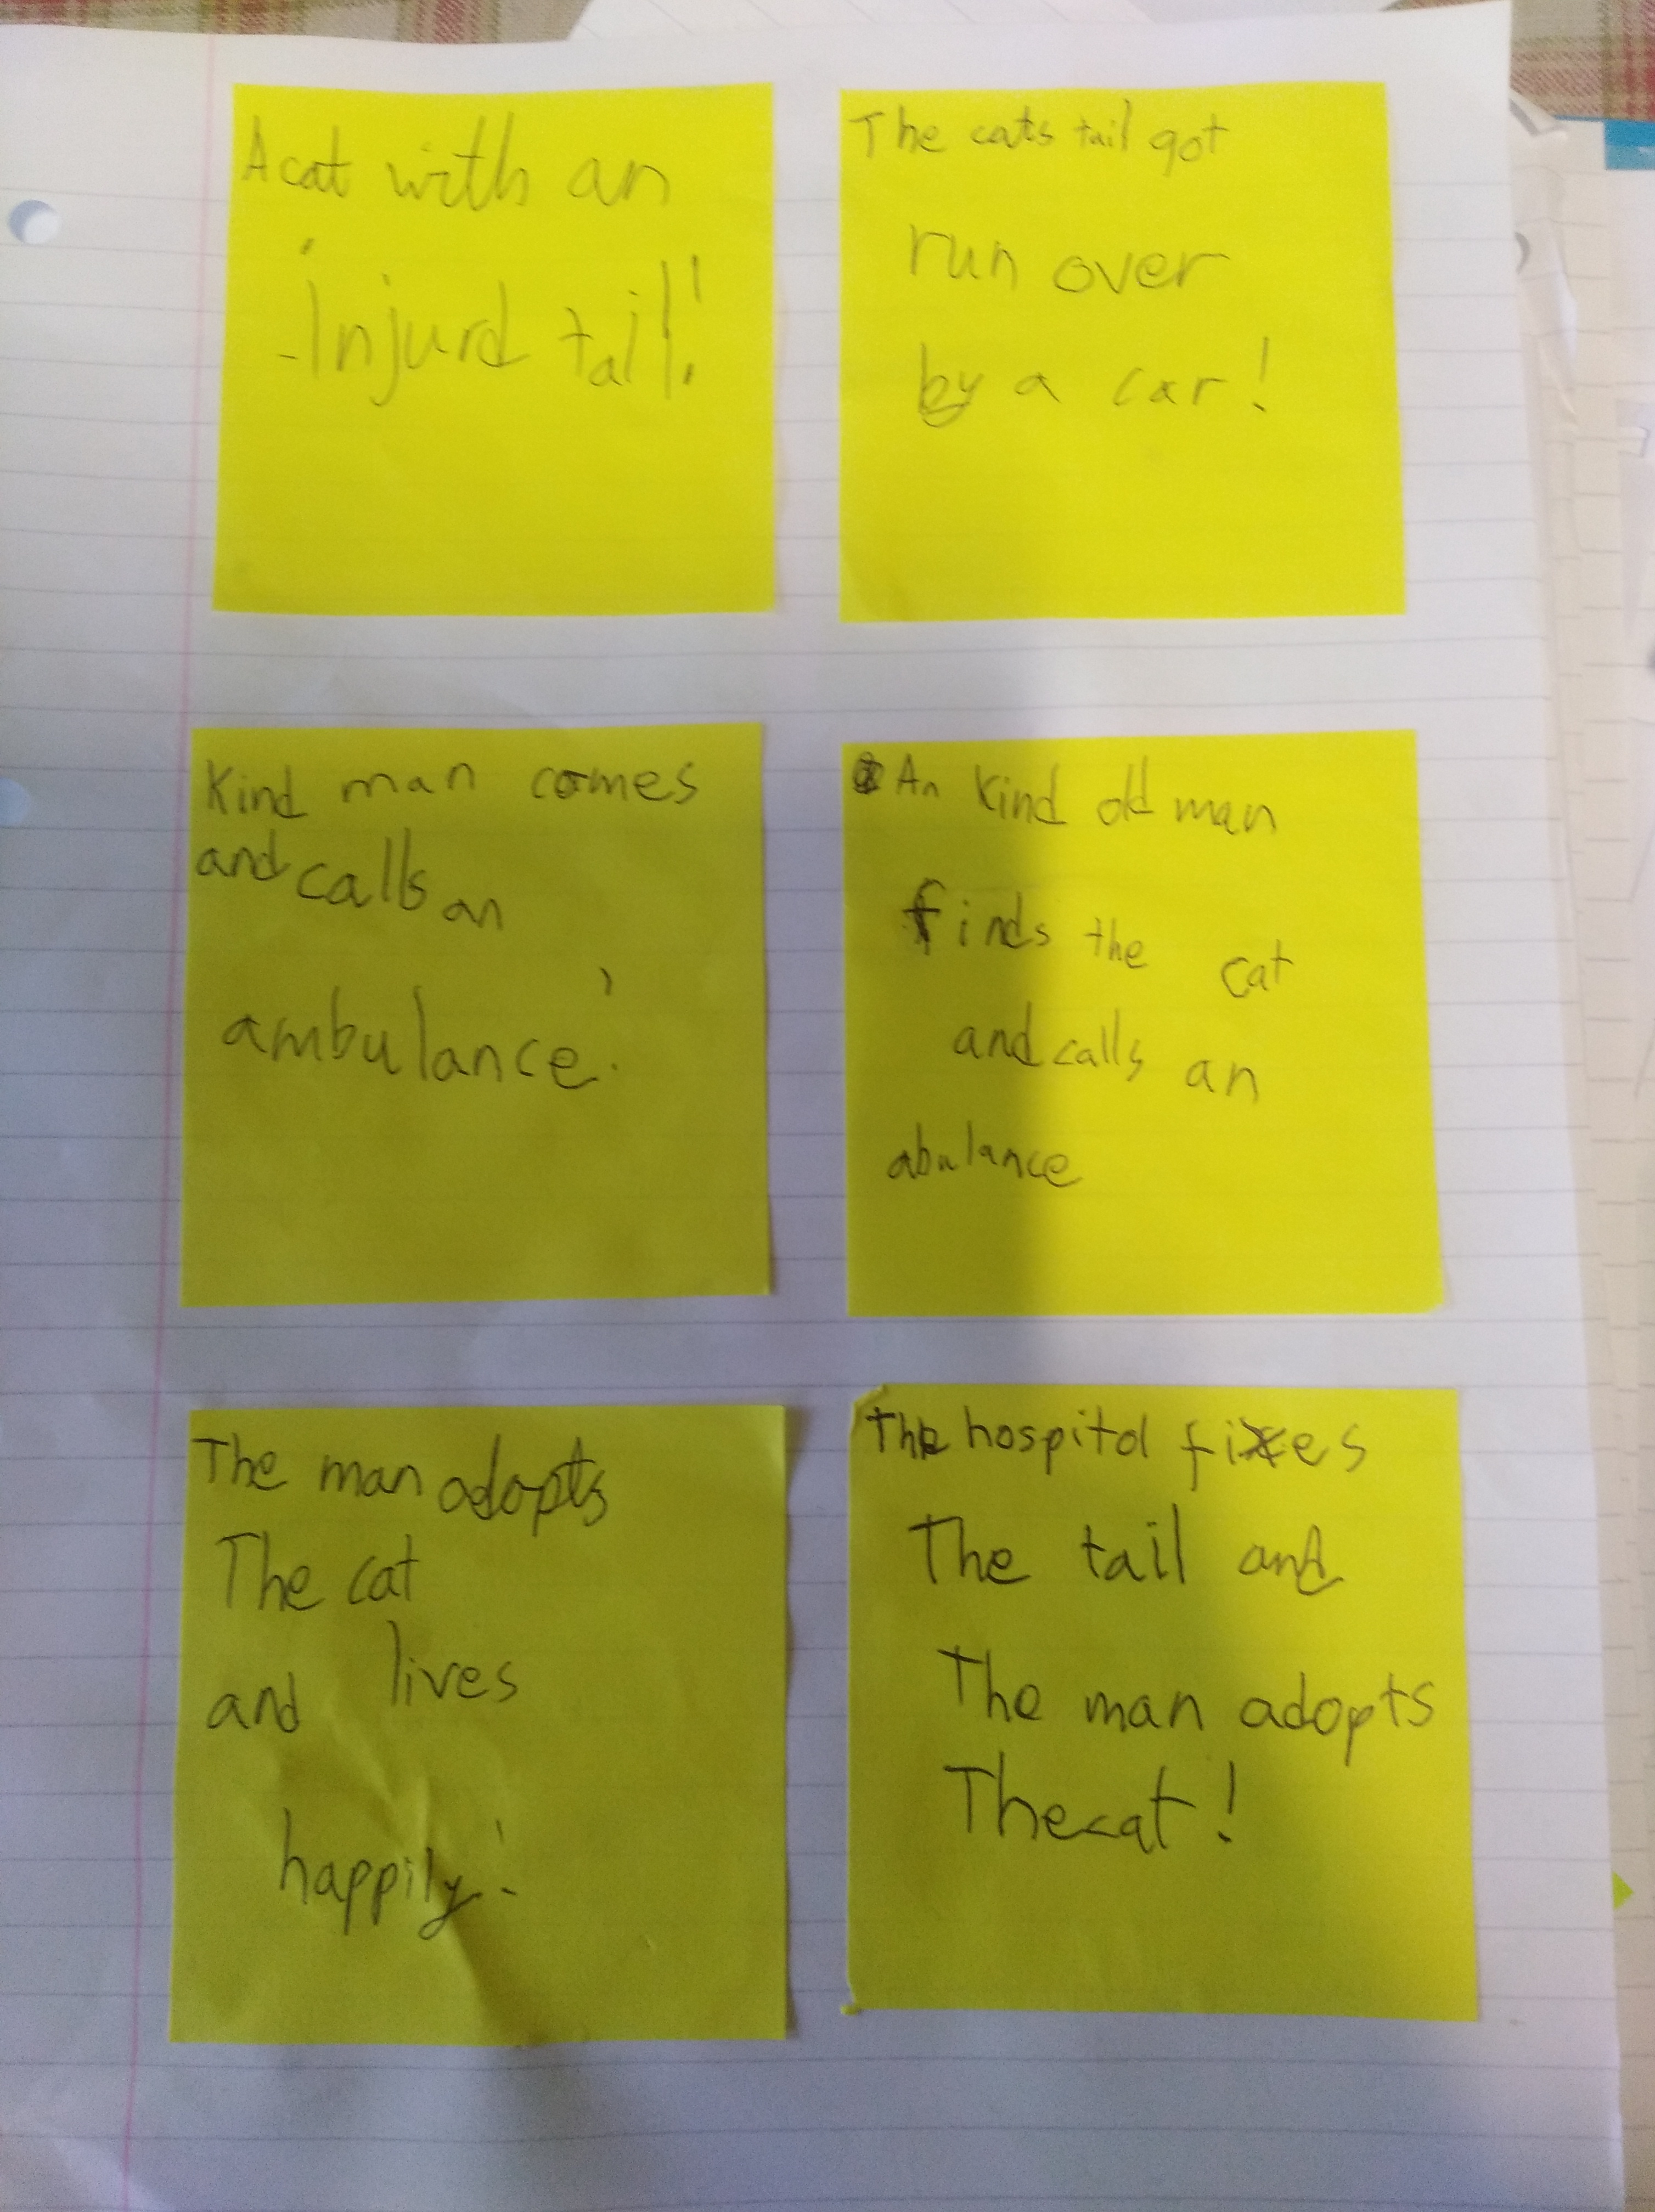 A cat with an
Injurd tail!
The cats tail got
run over
by a car!
Kind man comes
and calls an
ambulance!
An kind old man
finds the cat
and calls an
abulance
The man adopts
The cat
and lives
happily!
The hospital fixes
The tail and
The man adopts
The cat!